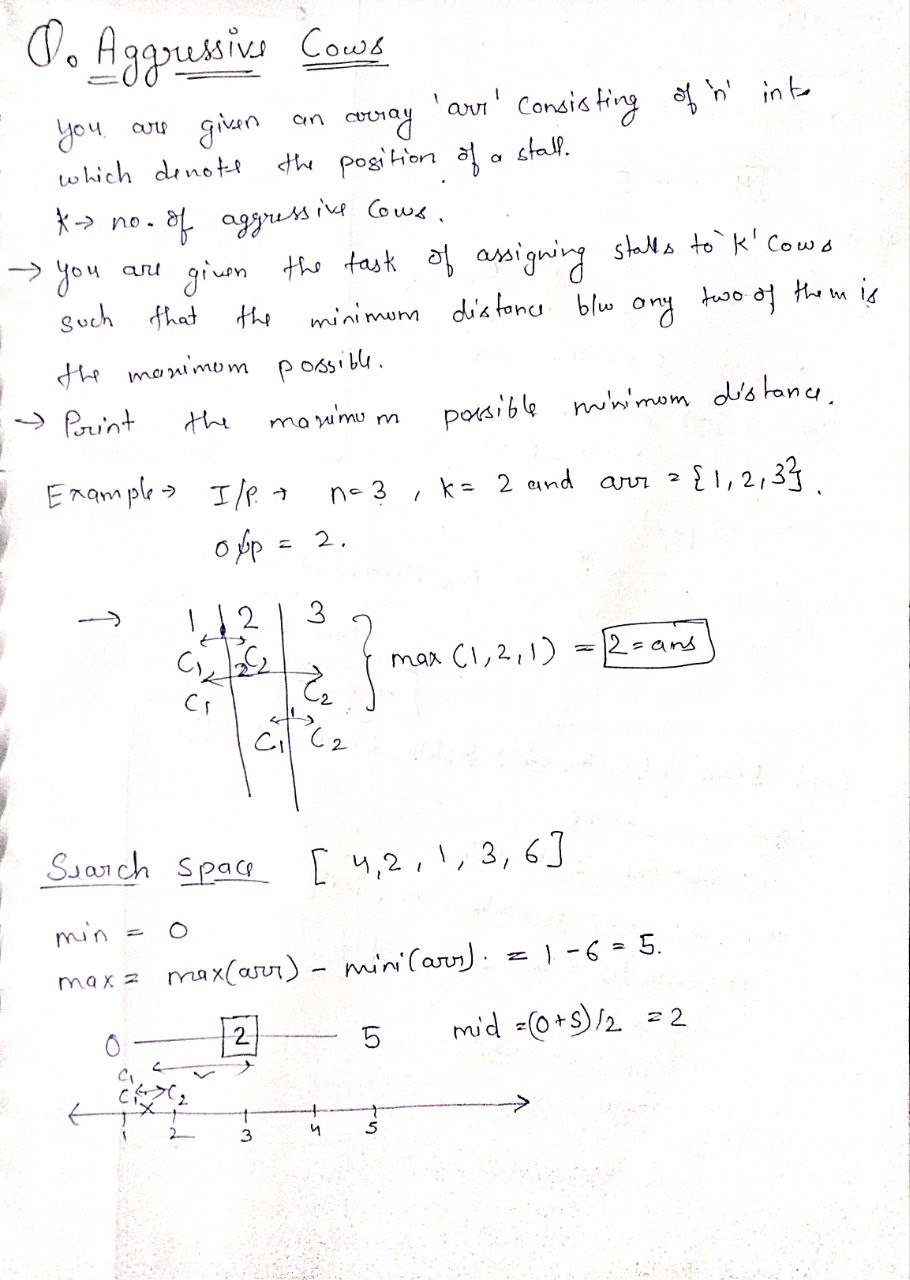 Q. Aggressive Cows
You are given an array 'arr' consisting of 'n' int
which denote the position of a stall.
k → no. of aggressive cows.
→ you are given the task of assigning stalls to 'K' cows
such that the minimum distance b/w any two of them is
the maximum possible.
→ Print the maximum possible minimum distance.
Example → I/P → n=3 , k= 2 and arr = {1,2,3}.
o/p = 2.
→ 1 2 3
C1 C2
2
C1 C2
1
C1 C2
max (1,2,1) = 2 = ans
Search Space [4,2,1,3,6]
min = 0
max = max(arr) - mini(arr). = 1-6 = 5.
0 2 5 mid = (0+5)/2 = 2
C1 ✓
C1 C2
×
1 2 3 4 5